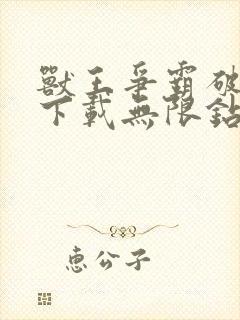 獸王爭霸破
下載無限鉆
惠公子